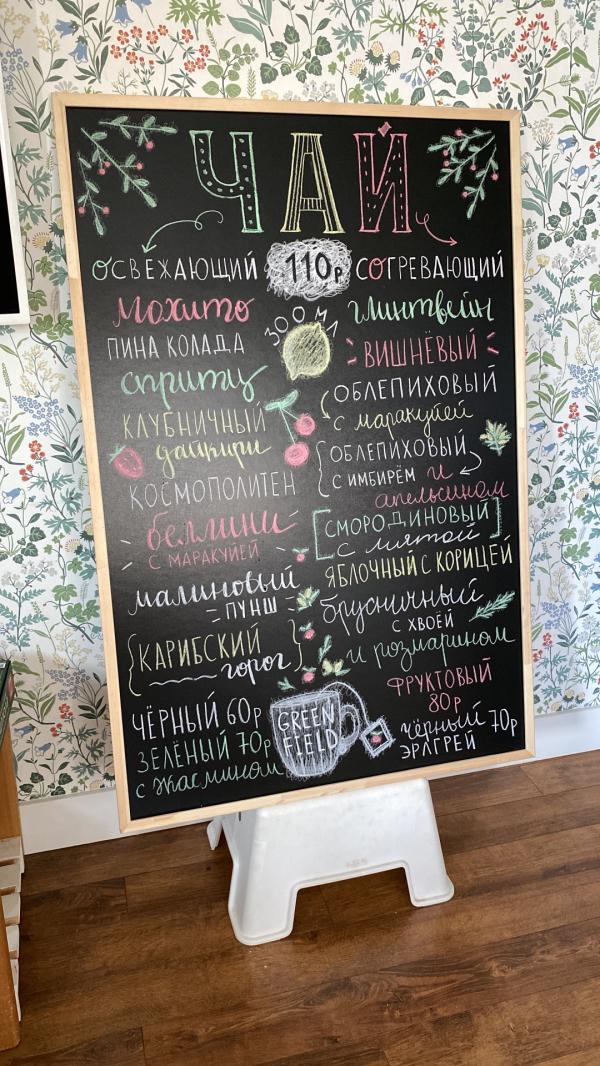 ЧАЙ
110р
300 МЛ
ОСВЕЖАЮЩИЙ
мохито
ПИНА КОЛАДА
спритц
КЛУБНИЧНЫЙ
дайкири
КОСМОПОЛИТЕН
беллини
С МАРАКУЙЕЙ
малиновый
ПУНШ
КАРИБСКИЙ
горог
СОГРЕВАЮЩИЙ
глинтвейн
ВИШНЁВЫЙ
ОБЛЕПИХОВЫЙ
с маракуйей
ОБЛЕПИХОВЫЙ
С ИМБИРЁМ и
апельсином
СМОРОДИНОВЫЙ
с мятой
ЯБЛОЧНЫЙ С КОРИЦЕЙ
брусничный
С ХВОЕЙ
и розмарином
GREEN
FIELD
ЧЁРНЫЙ 60р
ЗЕЛЁНЫЙ 70р
с жасмином
ФРУКТОВЫЙ
80р
чёрный 70р
ЭРЛГРЕЙ